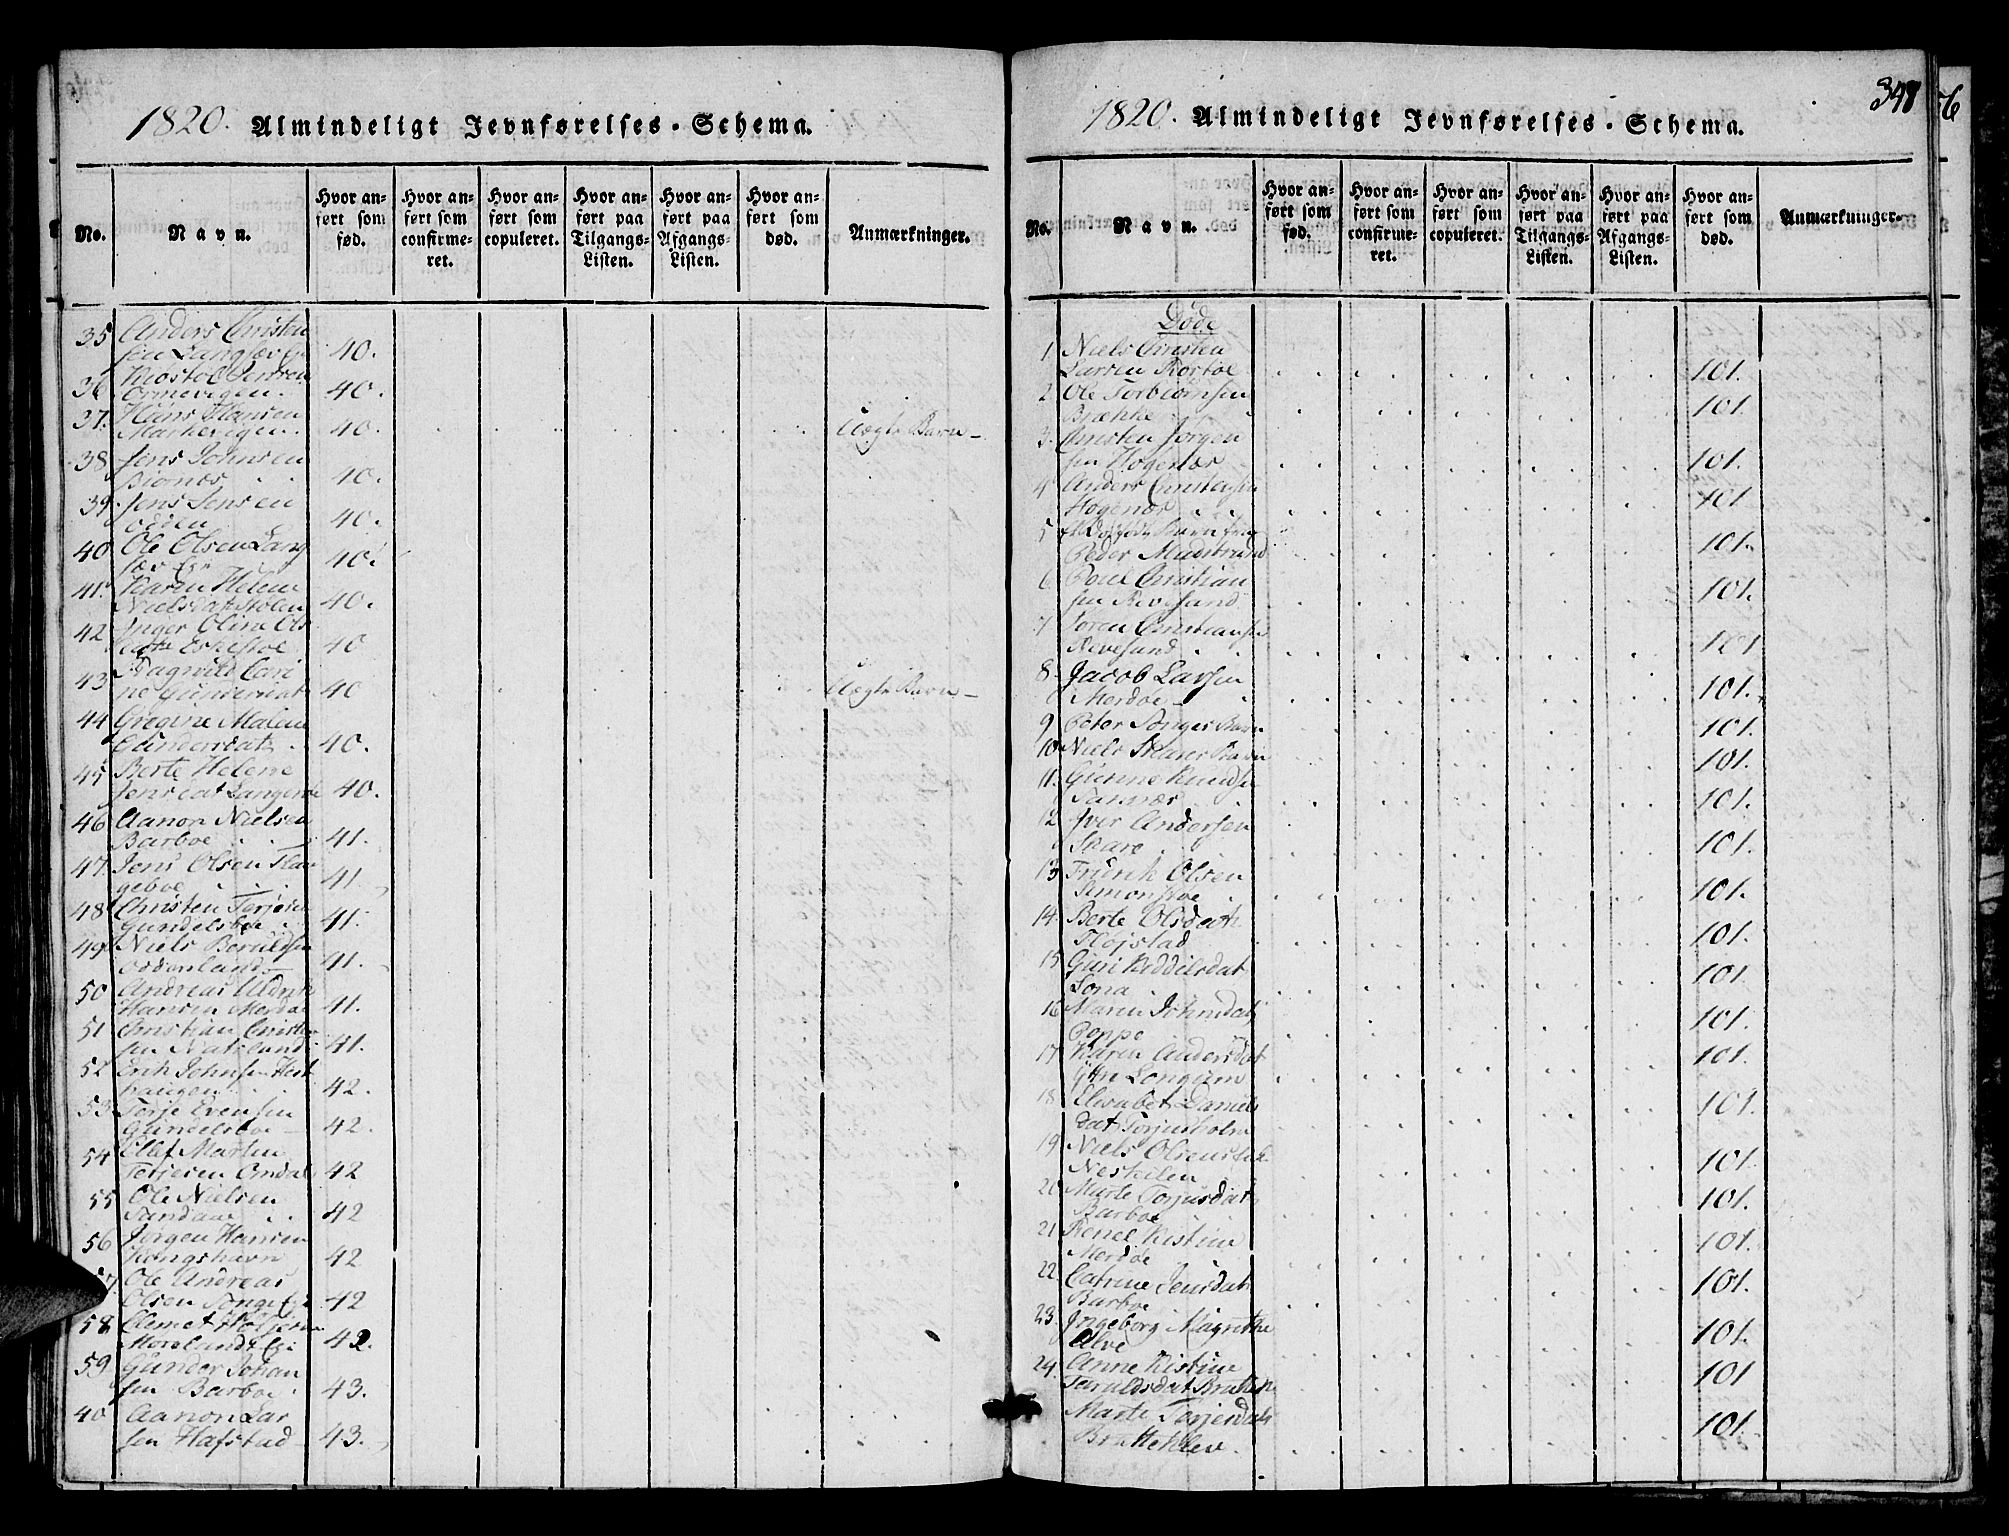 1820. Almindeligt Jevnførelses-Schema.
No.
Navn.
Hvor an-
ført som
fød.
Hvor an-
ført som
confirme-
ret.
Hvor an-
ført som
copuleret.
Hvor an-
ført paa
Tilgangs-
Listen.
Hvor an-
ført paa
Afgangs-
Listen.
Hvor an-
ført som
død.
Anmærkninger.
35 Anders Christen
sen Langsæv 40.
36 Jensen
Ormevigen. 40.
37. Hans Hansen
Markevigen. 40. Uægte Barn
38 Jens Johnsen
Biønnes 40.
39 Jens Jensen
odden 40.
40 Ole Olsen Lang
sæv 40.
41. Karen Helene
Nielsdat Stølen 40.
42 Inger Oline Ols
dattr Eskestøe 40
43 Ragnild Cari
ne Gundersdat 40 Uægte Barn
44 Gregine Malene
Gundersdatr 40.
45 Berte Helene
Jensdat Langenæs 40.
46 Aanon Nielsen
Barboe 41.
47. Jens Olsen Flau
geboe 41
48 Christen Terjesen
Gundelsboe 41.
49 Niels Beruldsen
Oddenland 41.
50 Andreas Uldrik
Hansen Merdøe 41.
51 Christian Christen
sen Natvland 41.
52 Erik Johnsen Hest
haugen 42.
53 Terje Evensen
Gundelsboe 42.
54 Ellef Martin
Terjesen Omdal 42
55 Ole Nielsen
Sandaae 42
56 Jørgen Hansen
Kongshavn 42
Ole Andreas
Olsen Songe 42
58 Clemet
Moreland 42.
59 Gunder Johan
sen Barboe 43.
40 Aanon Lar
sen Hafstad 43.
348
1820. Almindeligt Jevnførelses-Schema.
No.
Navn.
Hvor an-
ført som
fød.
Hvor an-
ført som
confirme-
ret.
Hvor an-
ført som
copuleret.
Hvor an-
ført paa
Tilgangs-
Listen.
Hvor an-
ført paa
Afgangs-
Listen.
Hvor an-
ført som
død.
Anmærkninger.
Døde
1 Niels Christen
Larsen Rørboe 101.
2 Ole Torbiørnsen
Brække 101
3. Christen Jørgen
sen Høgenæs 101.
4 Anders Christensen
Høgenæs 101
5 Barn
Peder Mudstrand 101.
6 Poul Christian
sen Revesand 101.
7 Søren Christiansen
Revesand 101
8 Jacob Larsen
Merdøe 101.
9 Peter Songes Barn 101.
10 Niels Skares Barn 101.
11. Gunne Knudsen
101.
12 Iver Andersen
Skare 101.
13 Fridrik Olsen
Simonstøe 101.
14. Berte Olsdattr
Fløjstad 101.
15 Guri Keddelsdat
Lona 101
16 Maren Johnsdatr
Reppe 101.
17 Karen Andersdat
Yttre Longum 101.
18 Elisabet Daniels
dat Torjusholm 101.
19 Niels Olsens
Neskilen 101.
20 Marte Torjusdat
Barboe 101.
21 Renel Kistine
Merdøe 101.
22 Catrine Jensdatr
Barboe 101.
23. Ingeborg Magrethe
Alve 101.
24. Anne Kistine
Taraldsdat Brattek 101
Marte Terjesdatr
Brattekleiv. 101.
56